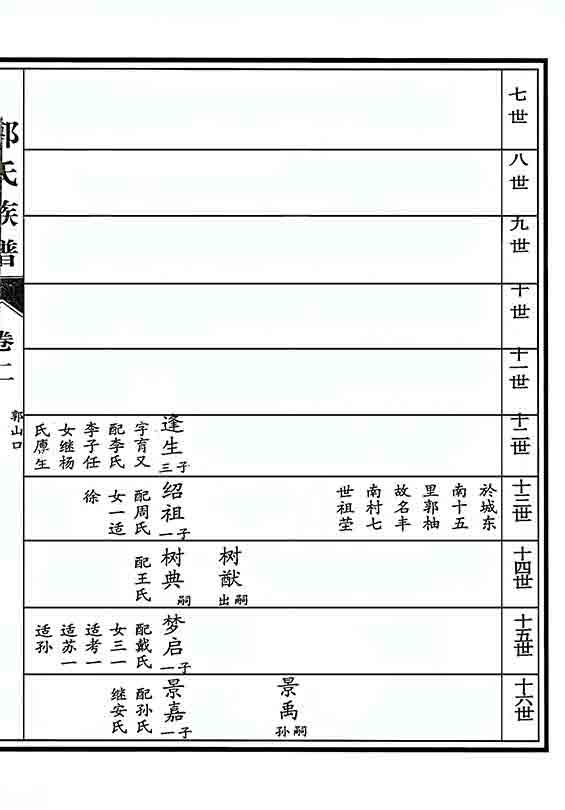 七世
八世
九世
十世
十一世
十二世
逢生
三子
字育又
配李氏
李子任
女继杨
氏原生
十三世
於城东
南十五
里郭柚
故名丰
南村七
世祖茔
绍祖
一子
配周氏
女一适
徐
十四世
树猷
出嗣
树典
嗣
配王氏
十五世
梦启
一子
配戴氏
女三一
适考一
适苏一
适孙
十六世
景禹
孙嗣
景嘉
一子
配孙氏
继安氏
郭氏族谱
卷二
郭山口